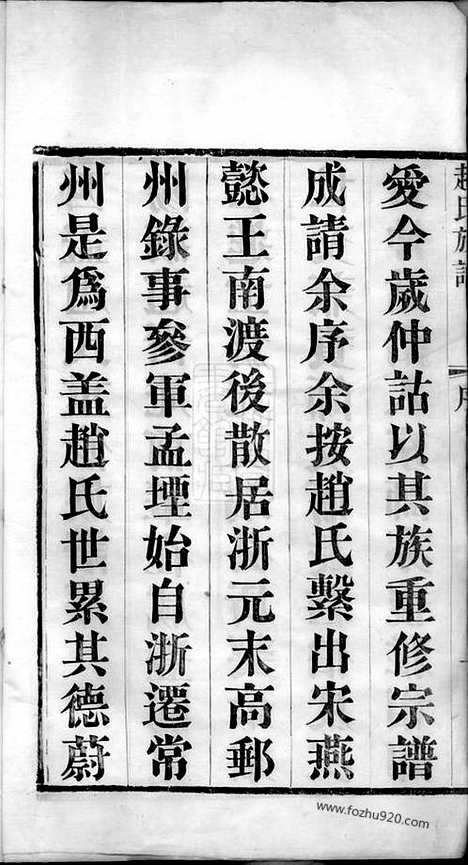 趙氏族譜
序
愛今歲仲詁以其族重修宗譜
成請余序余按趙氏繫出宋燕
懿王南渡後散居浙元末高郵
州錄事參軍孟堙始自浙遷常
州是為西盖趙氏世累其德蔚
www.fozhu920.com